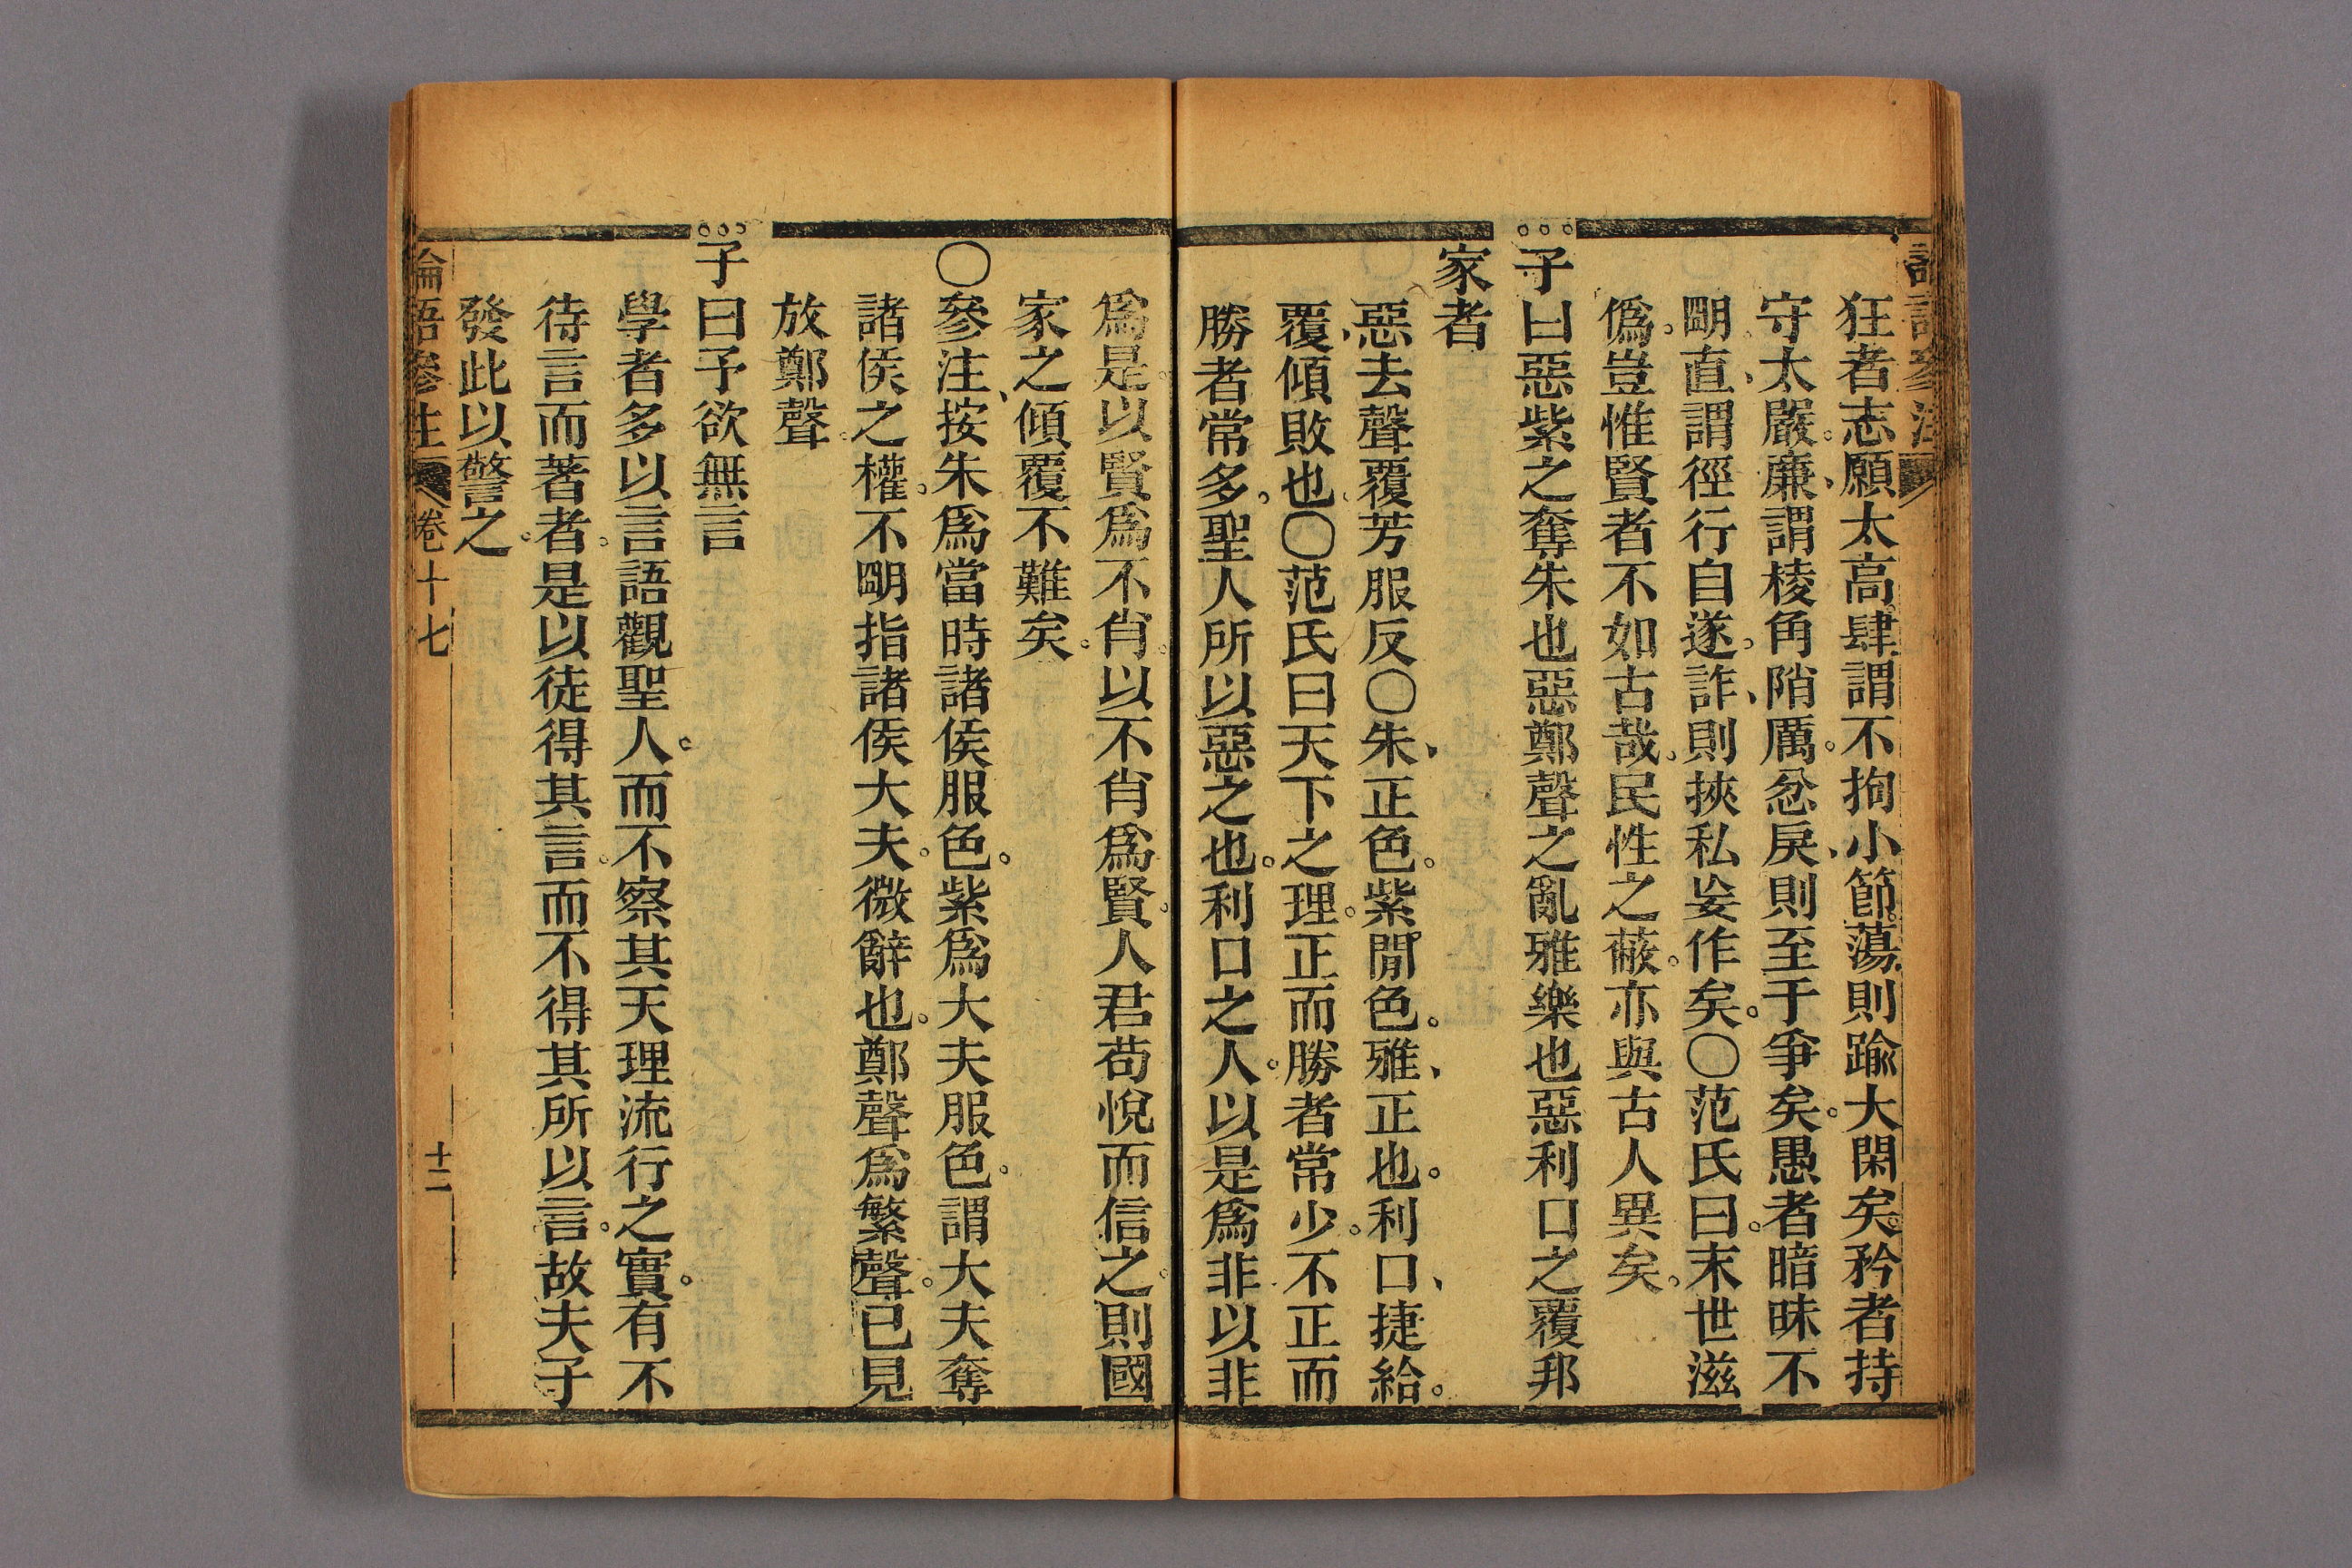 狂者志願太高。肆謂不拘小節。蕩則踰大閑矣。矜者持
守太嚴。廉、謂棱角陗厲。忿戾、則至于爭矣。愚者暗昧不
朙。直、謂徑行自遂。詐、則挾私妄作矣。〇范氏曰。末世滋
僞。豈惟賢者不如古哉。民性之蔽。亦與古人異矣。
子曰惡紫之奪朱也惡鄭聲之亂雅樂也惡利口之覆邦
家者
惡去聲覆芳服反〇朱、正色。紫閒色。雅、正也。利口、捷給。
覆、傾敗也。〇范氏曰天下之理。正而勝者常少。不正而
勝者常多。聖人所以惡之也。利口之人。以是爲非以非
爲是。以賢爲不肖。以不肖爲賢。人君苟悅而信之。則國
家之傾覆不難矣。
〇參注、按朱爲當時諸侯服色。紫爲大夫服色。謂大夫奪
諸侯之權。不朙指諸侯大夫。微辭也。鄭聲爲繁聲。已見
放鄭聲
子曰予欲無言
學者多以言語觀聖人。而不察其天理流行之實。有不
待言而著者。是以徒得其言。而不得其所以言。故夫子
發此以警之。
論語參注 卷十七 十二